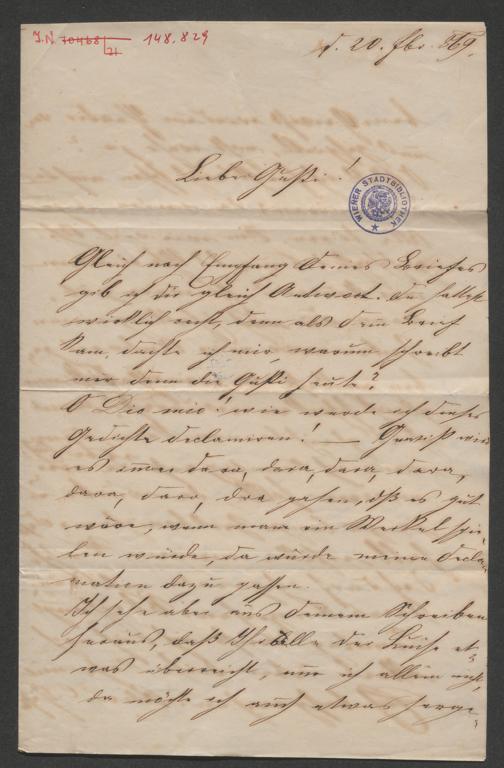 J.N. 70468/21 148.829
d. 20. Fbr. 869.
Liebe Gusti!
WIENER STADTBIBLIOTHEK
Gleich nach Empfang deines Briefes
gib ich dir gleich Antwort. Du hattest
wirklich recht, denn als dein Brief
kam, dachte ich mir, warum schreibt
mir denn die Gusti heute?
O Dio mio! wie werde ich dieses
Gedicht declamiren! — Gewiß wird
es immer da ra, dara, dara, dara,
dara, dara, dra gehen, dß es gut
wäre, wenn man ein Werkel spie-
len würde, da würde meine Decla-
mation dazu passen.
Ich sehe aber aus deinem Schreiben
heraus, daß Ihr alle der Luise et-
was überreicht, nur ich allein nicht,
da möchte ich auch etwas